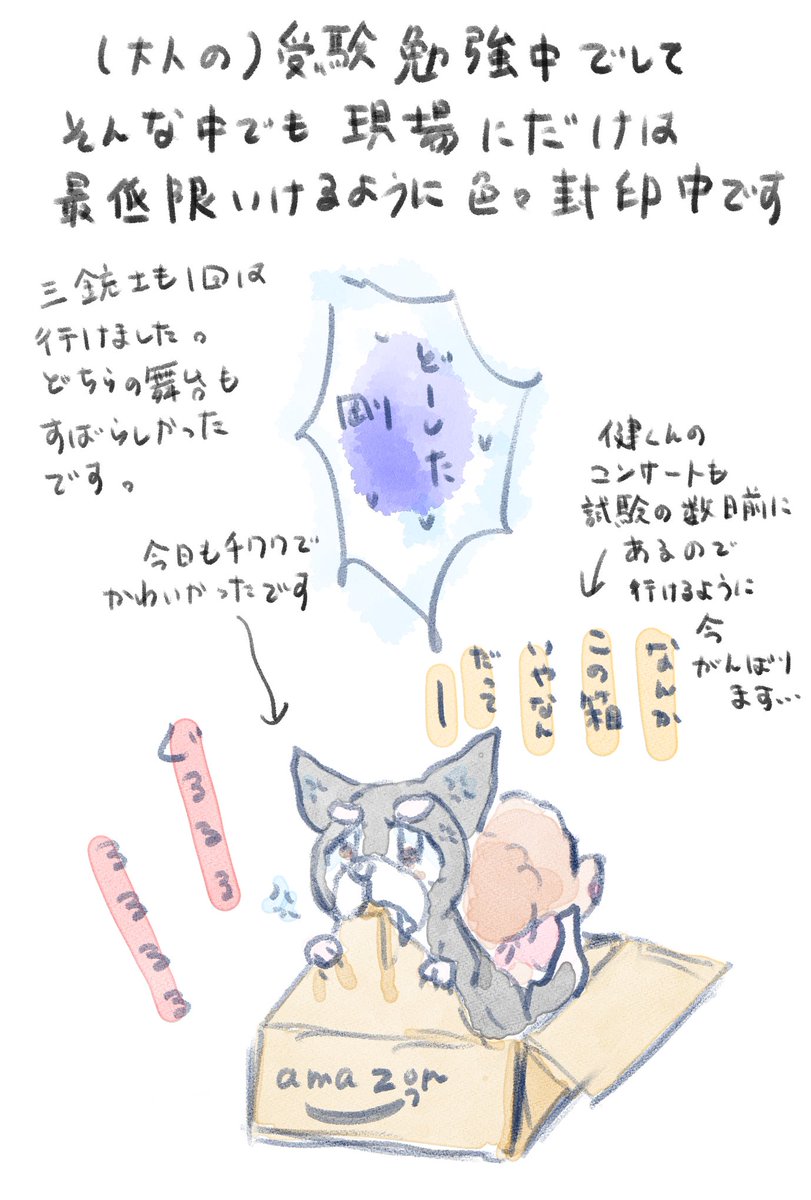 (大人の)受験勉強中でして
そんな中でも現場にだけは
最低限いけるように色々封印中です
三銃士も1回は
行けました。
どちらの舞台も
すばらしかった
です。
どーした
剛
健くんの
コンサートも
試験の数日前に
あるので
行けるように
今
がんばり
ます…
今日もチワワで
かわいかったです
なんか
この箱
いやなん
だって
ー
ぐろろろ
ろろろろ
amazon